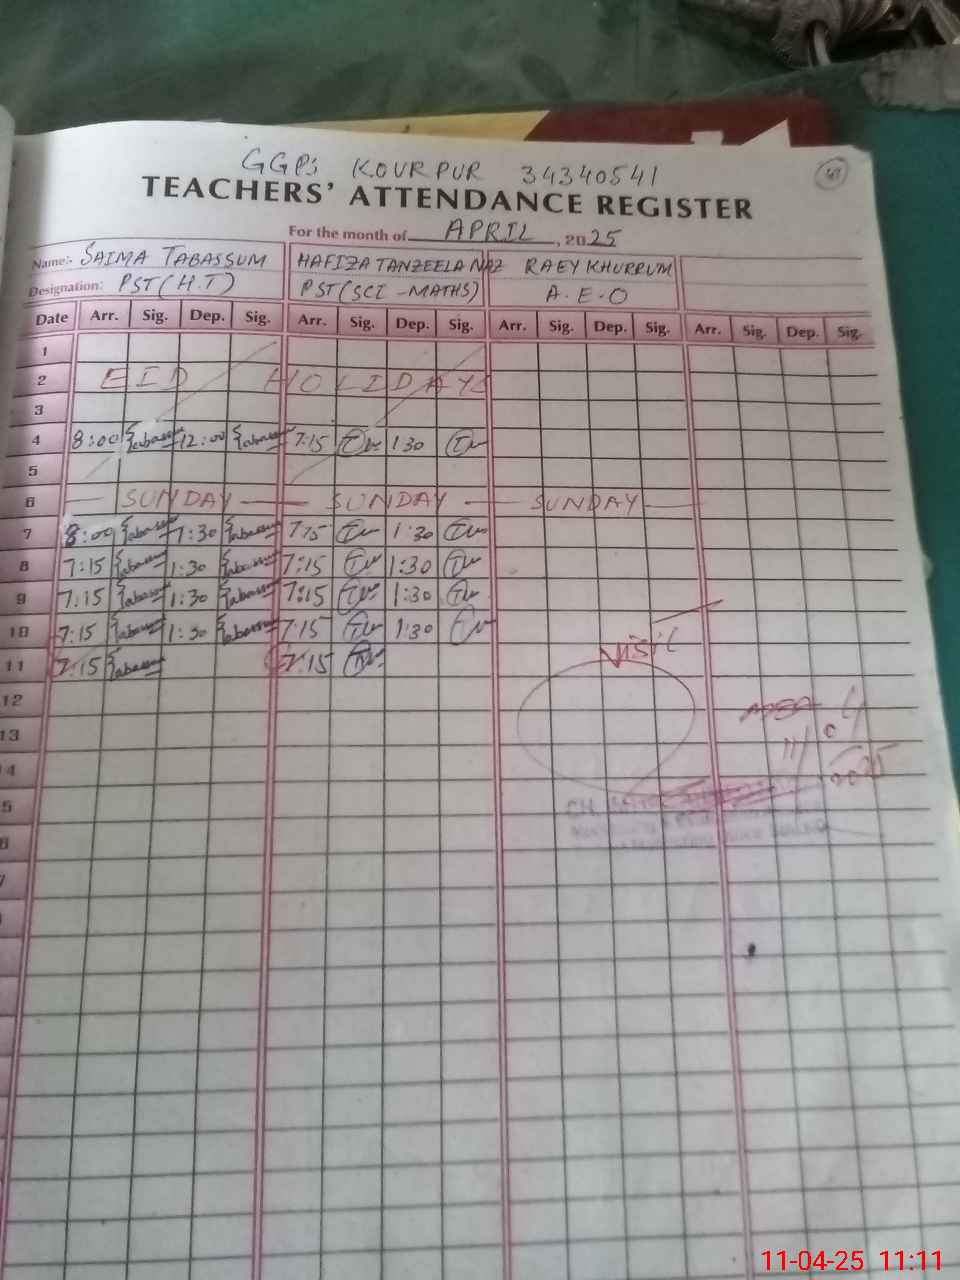 GGPS KOURPUR 34340541
TEACHERS' ATTENDANCE REGISTER
For the month of APRIL, 2025
Name:- SAIMA TABASSUM HAFIZA TANZEELA NAZ RAEY KHURRUM
Designation: PST (H.T) PST (SCI-MATHS) A.E.O
Date Arr. Sig. Dep. Sig. Arr. Sig. Dep. Sig. Arr. Sig. Dep. Sig. Arr. Sig. Dep. Sig.
1
2 EID HOLIDAYS
3
4 8:00 Tabassum 12:00 Tabassum 7:15 1:30
5
6 SUNDAY SUNDAY SUNDAY
7 8:00 Tabassum 1:30 Tabassum 7:15 1:30
8 7:15 Tabassum 1:30 Tabassum 7:15 1:30
9 7:15 Tabassum 1:30 Tabassum 7:15 1:30
10 7:15 Tabassum 1:30 Tabassum 7:15 1:30
Visit
11 7:15 Tabassum 7:15
12
13
11/04
14
2025
11-04-25 11:11